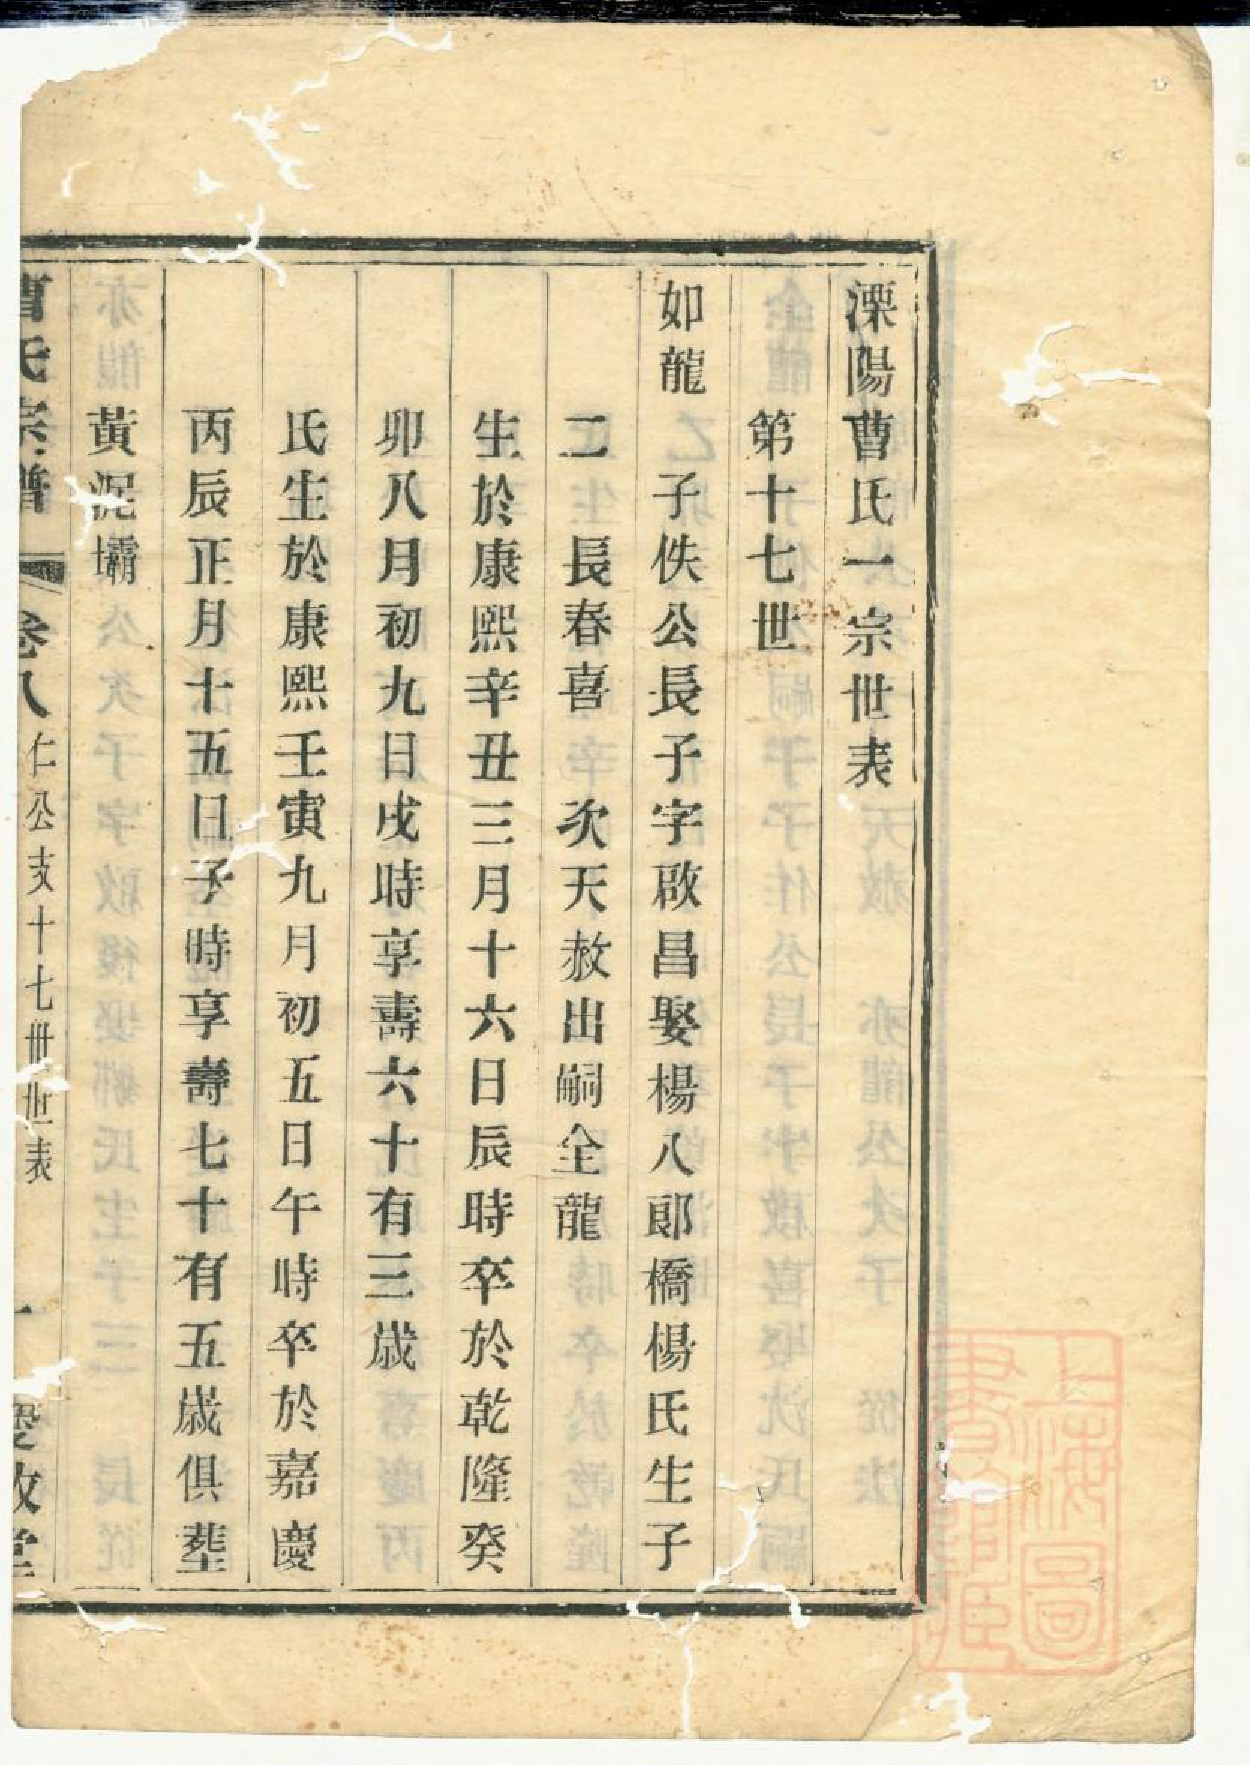 溧陽曹氏一宗世表
第十七世
如龍　子佚公長子字啟昌娶楊八郞橋楊氏生子
二　長春喜　次天赦出嗣全龍
生於康熙辛丑三月十六日辰時卒於乾隆癸
卯八月初九日戌時享壽六十有三歲
氏生於康熙壬寅九月初五日午時卒於嘉慶
丙辰正月十五日子時享壽七十有五歲俱塟
黃泥壩
曹氏宗譜　卷八　仁公支十七卅世表　一　愛敬堂
上海圖書館藏